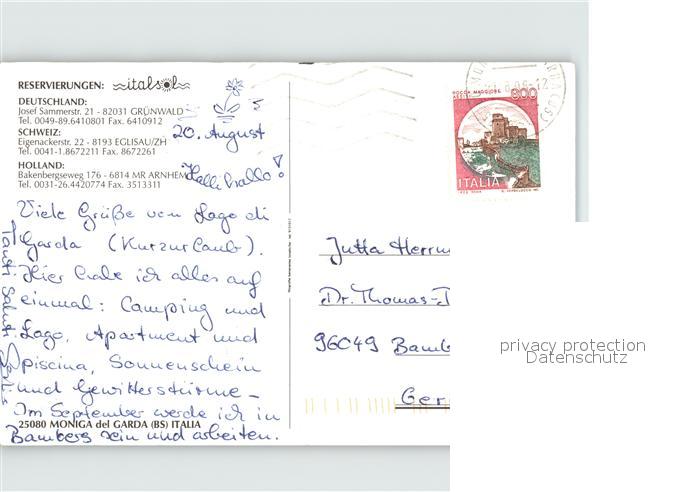 RESERVIERUNGEN: italsol
DEUTSCHLAND:
Josef Sammerstr. 21 - 82031 GRÜNWALD
Tel. 0049-89.6410801 Fax. 6410912
SCHWEIZ:
Eigenackerstr. 22 - 8193 EGLISAU/ZH
Tel. 0041-1.8672211 Fax. 8672261
HOLLAND:
Bakenbergseweg 176 - 6814 MR ARNHEM
Tel. 0031-26.4420774 Fax. 3513311
20. August
Hallihallo!
Viele Grüße vom Lago di
Garda (Kurzurlaub).
Hier habe ich alles auf
einmal: Camping und
Lago, Apartment und
piscina, Sonnenschein
und Gewitterstürme –
Im September werde ich in
Bamberg sein und arbeiten.
25080 MONIGA del GARDA (BS) ITALIA
Tanti Saluti
ROCCA MAGGIORE
ASSISI
800
ITALIA
Jutta Herrm
Dr. Thomas-
96049 Bamb
Ger
privacy protection
Datenschutz